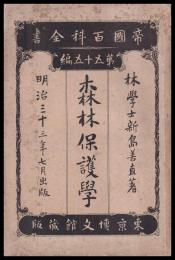 帝國百科全書
第五十五編
林學士新島善直著
森林保護學
明治三十三年七月出版
東京博文館藏版